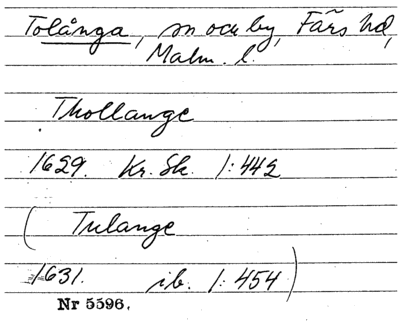 Tolånga, sn och by, Färs hd,
Malm. l.
Thollange
1629. Kr. Sk. 1:442
( Tulange
1631. ib. 1:454 )
Nr 5596.